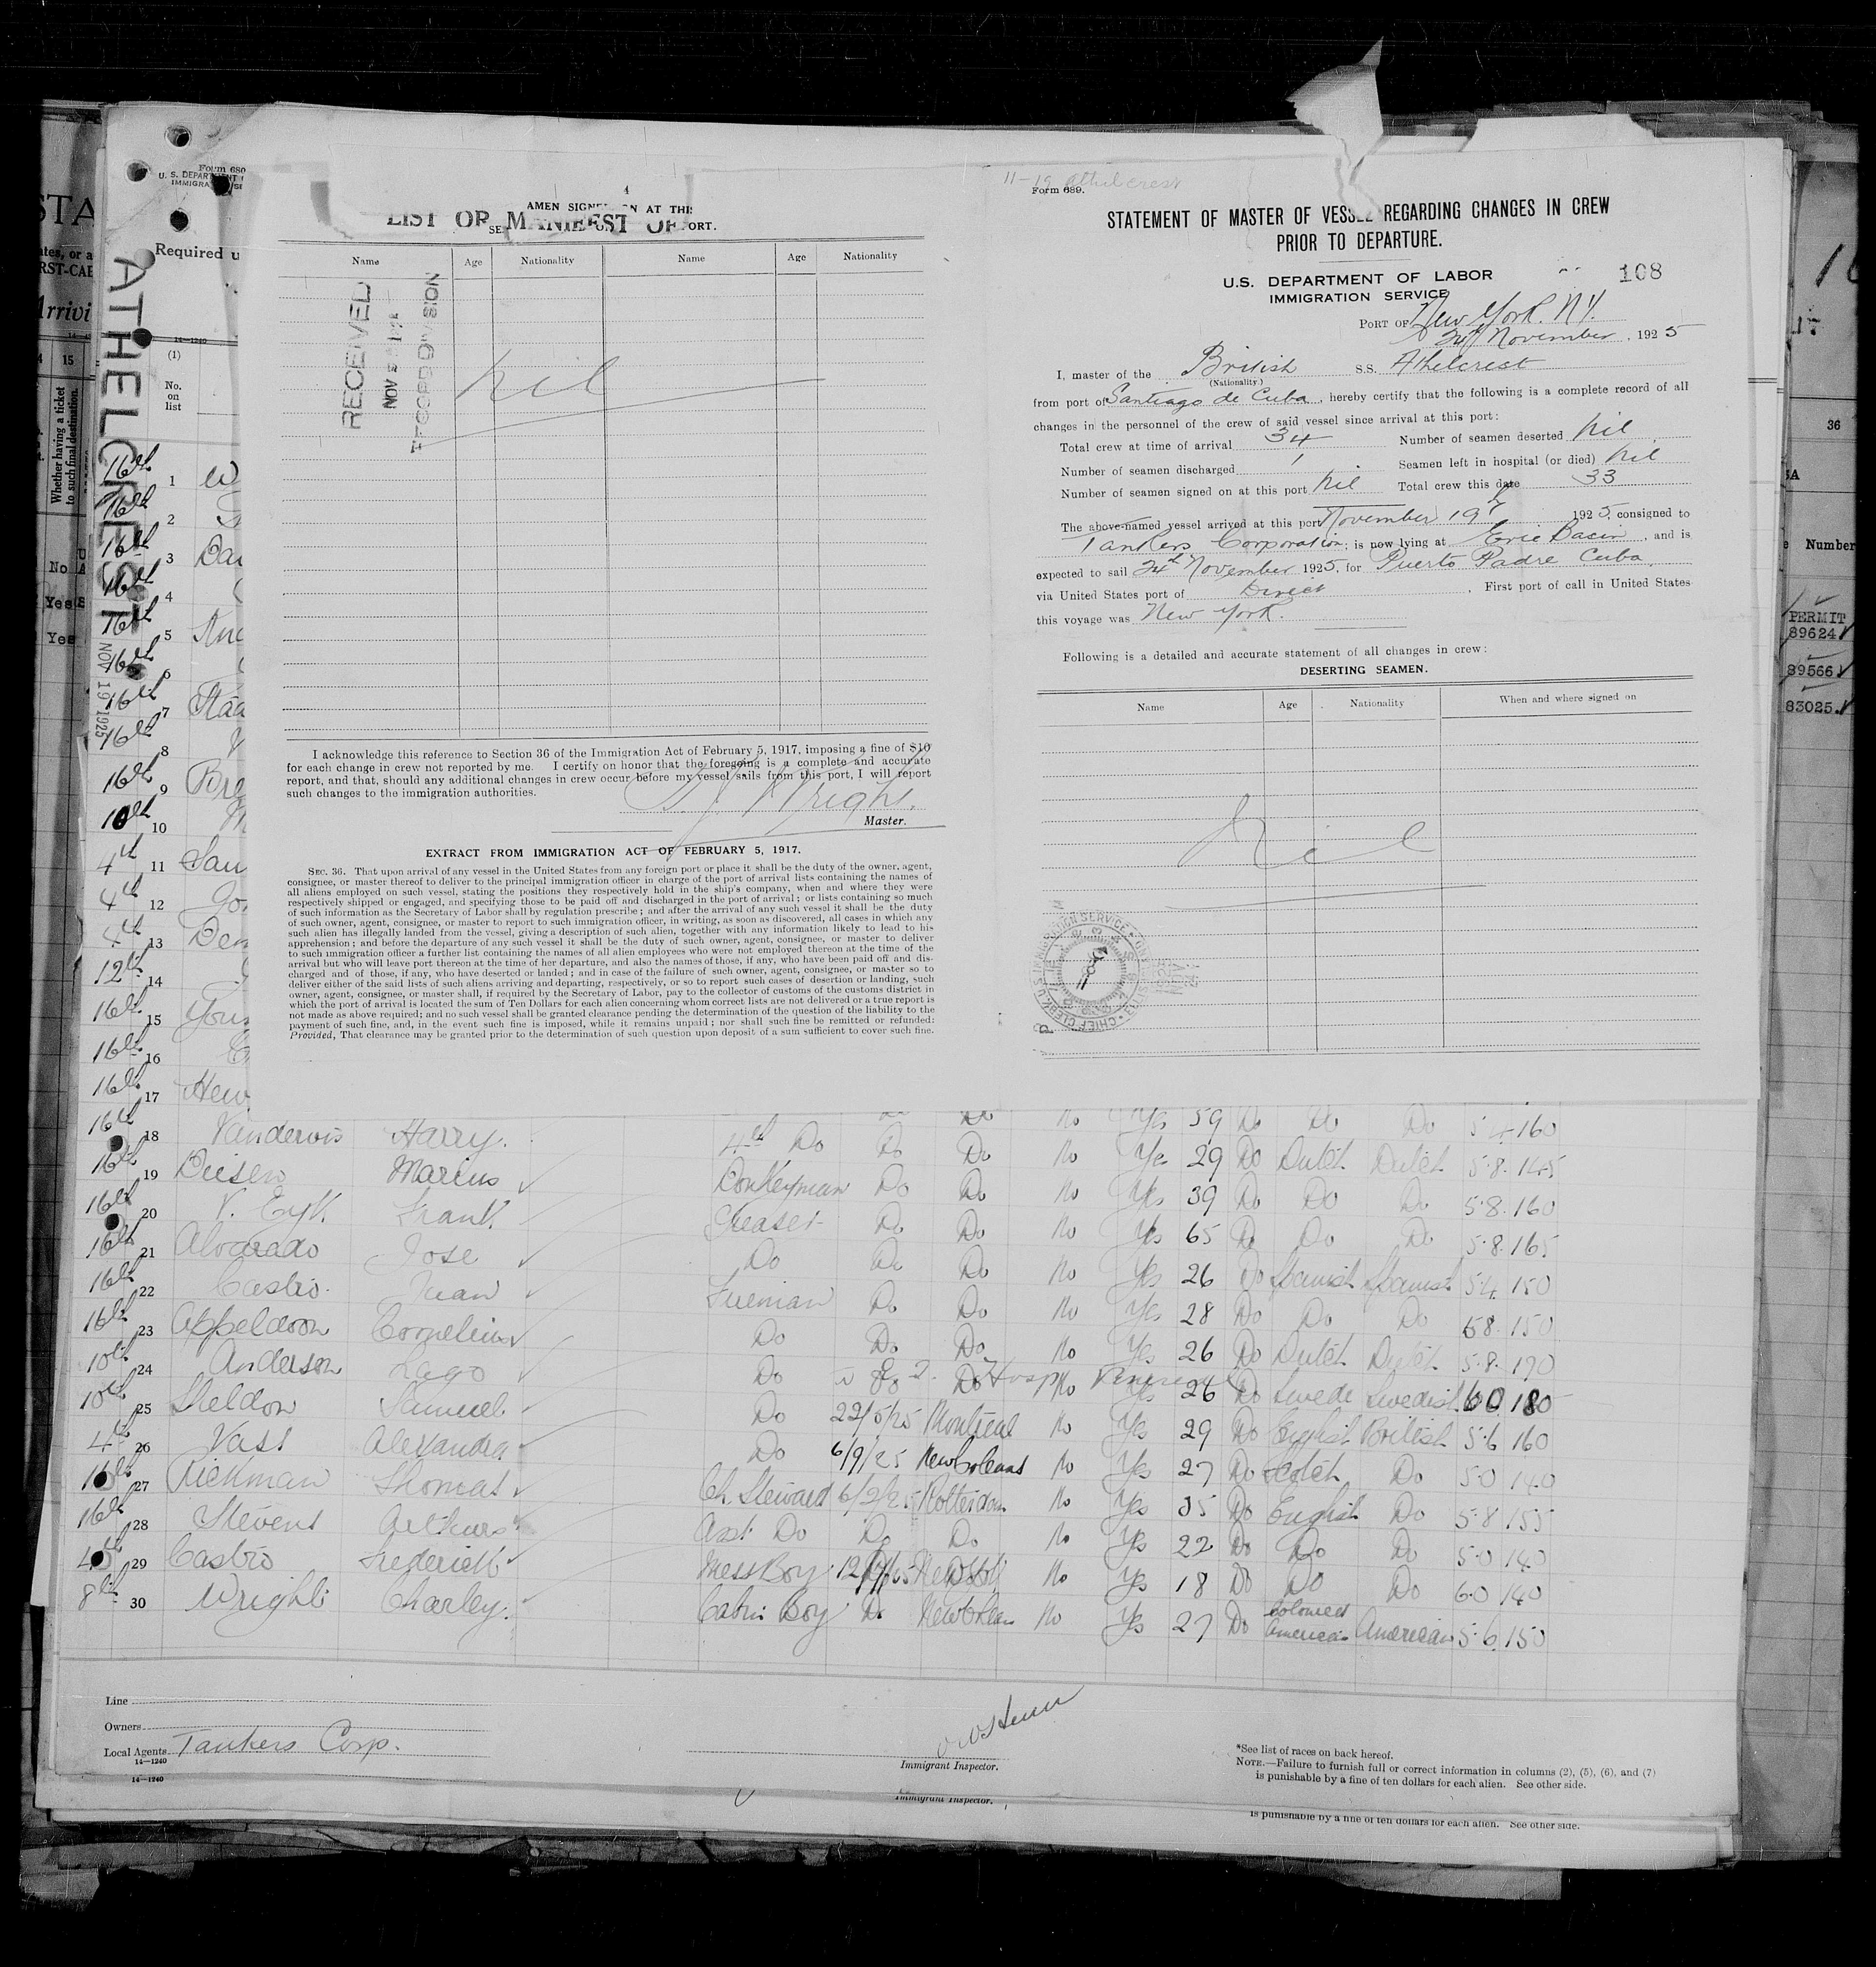 4
AMEN SIGNED ON AT THIS
LIST OR MANIFEST OF
ORT.
Name Age Nationality Name Age Nationality
RECEIVED
NOV
RECORD DIVISION
nil
I acknowledge this reference to Section 36 of the Immigration Act of February 5, 1917, imposing a fine of $10
for each change in crew not reported by me. I certify on honor that the foregoing is a complete and accurate
report, and that, should any additional changes in crew occur before my vessel sails from this port, I will report
such changes to the immigration authorities.
Wright.
Master.
EXTRACT FROM IMMIGRATION ACT OF FEBRUARY 5, 1917.
SEC. 36. That upon arrival of any vessel in the United States from any foreign port or place it shall be the duty of the owner, agent,
consignee, or master thereof to deliver to the principal immigration officer in charge of the port of arrival lists containing the names of
all aliens employed on such vessel, stating the positions they respectively hold in the ship's company, when and where they were
respectively shipped or engaged, and specifying those to be paid off and discharged in the port of arrival; or lists containing so much
of such information as the Secretary of Labor shall by regulation prescribe; and after the arrival of any such vessel it shall be the duty
of such owner, agent, consignee, or master to report to such immigration officer, in writing, as soon as discovered, all cases in which any
such alien has illegally landed from the vessel, giving a description of such alien, together with any information likely to lead to his
apprehension; and before the departure of any such vessel it shall be the duty of such owner, agent, consignee, or master to deliver
to such immigration officer a further list containing the names of all alien employees who were not employed thereon at the time of the
arrival but who will leave port thereon at the time of her departure, and also the names of those, if any, who have been paid off and dis-
charged and of those, if any, who have deserted or landed; and in case of the failure of such owner, agent, consignee, or master so to
deliver either of the said lists of such aliens arriving and departing, respectively, or so to report such cases of desertion or landing, such
owner, agent, consignee, or master shall, if required by the Secretary of Labor, pay to the collector of customs of the customs district in
which the port of arrival is located the sum of Ten Dollars for each alien concerning whom correct lists are not delivered or a true report is
not made as above required; and no such vessel shall be granted clearance pending the determination of the question of the liability to the
payment of such fine, and, in the event such fine is imposed, while it remains unpaid; nor shall such fine be remitted or refunded:
Provided, That clearance may be granted prior to the determination of such question upon deposit of a sum sufficient to cover such fine.
11-19 Athelcrest
Form 689.
STATEMENT OF MASTER OF VESSEL REGARDING CHANGES IN CREW
PRIOR TO DEPARTURE.
U.S. DEPARTMENT OF LABOR
IMMIGRATION SERVICE
108
PORT OF New York. N.Y.
24 November, 1925
I, master of the British S.S. Athelcrest
(Nationality.)
from port of Santiago de Cuba, hereby certify that the following is a complete record of all
changes in the personnel of the crew of said vessel since arrival at this port:
Total crew at time of arrival 34 Number of seamen deserted nil
Number of seamen discharged 1 Seamen left in hospital (or died) nil
Number of seamen signed on at this port nil Total crew this date 33
The above-named vessel arrived at this port November 19th 1925, consigned to
Tankers Corporation; is now lying at Erie Basin, and is
expected to sail 24th November 1925, for Puerto Padre Cuba.
via United States port of Direct. First port of call in United States
this voyage was New York.
Following is a detailed and accurate statement of all changes in crew:
DESERTING SEAMEN.
Name Age Nationality When and where signed on
Nil
Form 680
Required u
ATHELCREST
NOV 19 1925
14-1240
(1)
No. on list
16th 1
16th 2
16th 3
16th 4
16th 5
16th 6
16th 7
16th 8
16th 9
10th 10
4th 11
4th 12
4th 13
12th 14
16th 15
16th 16
16th 17
No Yes 59 Do Do Do 5.4 160
16th 18 Vandervis Harry. 4th Do Do Do No Yes 29 Do Dutch Dutch 5.8. 145
16th 19 Diesen Marius Donkeyman Do Do No Yes 39 Do Do Do 5.8. 160
16th 20 V. Eyk. Frank Greaser Do Do No Yes 65 Do Do Do 5.8. 165
16th 21 Alvarado Jose Do Do Do No Yes 26 Do Spanish Spanish 5.4. 150
16th 22 Castro. Juan Fireman Do Do No Yes 28 Do Do Do 5.8. 150
16th 23 Appeldoorn Cornelius Do Do Do No Yes 26 Do Dutch Dutch 5.8. 170
10th 24 Anderson Do Do Do Hosp No Yes 26 Do Swede Swedish 6.0 180
10th 25 Sheldon Samuel. Do 22/5/25 Montreal No Yes 29 Do English British 5.6 160
4th 26 Vast Alexandra Do 6/9/25 New Orleans No Yes 27 Do Scotch Do 5.0 140
16th 27 Rickman Thomas Ch. Steward 6/2/25 Rotterdam No Yes 35 Do English Do 5.8 155
16th 28 Stevens Arthur Asst. Do Do Do No Yes 22 Do Do Do 5.0 140
29 Castro Frederick Mess Boy No Yes 18 Do Do Do 6.0 140
8th 30 Wright Charley. Cabin Boy Do New Orleans No Yes 27 Do Coloured American American 5.6. 150
Line
Owners
Local Agents Tankers Corp.
14-1240
14-1240
Immigrant Inspector.
Immigrant Inspector.
*See list of races on back hereof.
NOTE.—Failure to furnish full or correct information in columns (2), (5), (6), and (7)
is punishable by a fine of ten dollars for each alien. See other side.
is punishable by a fine of ten dollars for each alien. See other side.
15
Whether having a ticket
to such final destination.
No
Yes
Yes
36
Number
PERMIT
89624
89566
83025